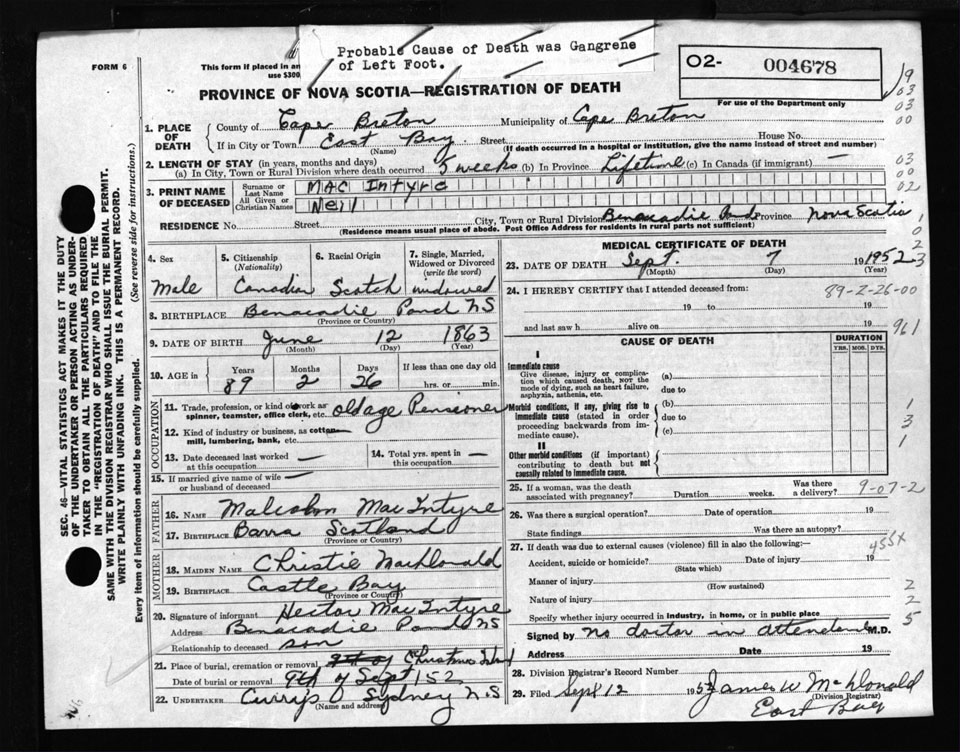 Probable Cause of Death was Gangrene
of Left Foot.
FORM 6
This form if placed in an
use $300,
O2- 004678
For use of the Department only
PROVINCE OF NOVA SCOTIA—REGISTRATION OF DEATH
1. PLACE OF DEATH
County of Cape Breton Municipality of Cape Breton
If in City or Town East Bay (Name) Street House No.
(If death occurred in a hospital or institution, give the name instead of street and number)
2. LENGTH OF STAY (in years, months and days)
(a) In City, Town or Rural Division where death occurred 5 weeks (b) In Province Lifetime (c) In Canada (if immigrant) —
3. PRINT NAME OF DECEASED
Surname or Last Name MAC Intyre
All Given or Christian Names Neil
RESIDENCE No. Street City, Town or Rural Division Benacadie Pond Province Nova Scotia
(Residence means usual place of abode. Post Office Address for residents in rural parts not sufficient)
4. Sex Male
5. Citizenship (Nationality) Canadian
6. Racial Origin Scotch
7. Single, Married, Widowed or Divorced (write the word) widowed
8. BIRTHPLACE Benacadie Pond NS
(Province or Country)
9. DATE OF BIRTH June 12 1863
(Month) (Day) (Year)
10. AGE in Years 89 Months 2 Days 26 If less than one day old hrs. or min.
OCCUPATION
11. Trade, profession, or kind of work as spinner, teamster, office clerk, etc. old age Pensioner
12. Kind of industry or business, as cotton mill, lumbering, bank, etc. —
13. Date deceased last worked at this occupation —
14. Total yrs. spent in this occupation —
15. If married give name of wife or husband of deceased —
FATHER
16. NAME Malcolm MacIntyre
17. BIRTHPLACE Barra Scotland
(Province or Country)
MOTHER
18. MAIDEN NAME Christie MacDonald
19. BIRTHPLACE Castle Bay
(Province or Country)
20. Signature of informant Hector MacIntyre
Address Benacadie Pond NS
Relationship to deceased son
21. Place of burial, cremation or removal Christmas Island
Date of burial or removal 9th of Sept 1952
22. UNDERTAKER Currys Sydney N S
(Name and address)
MEDICAL CERTIFICATE OF DEATH
23. DATE OF DEATH Sept. 7 1952
(Month) (Day) (Year)
24. I HEREBY CERTIFY that I attended deceased from:
89-2-26-00
19 to 19
and last saw h alive on 19
961
CAUSE OF DEATH
DURATION
YRS. MOS. DYS.
I
Immediate cause
Give disease, injury or complication which caused death, not the mode of dying, such as heart failure, asphyxia, asthenia, etc.
(a)
due to
Morbid conditions, if any, giving rise to immediate cause (stated in order proceeding backwards from immediate cause).
(b)
due to
(c)
II
Other morbid conditions (if important) contributing to death but not causally related to immediate cause.
25. If a woman, was the death associated with pregnancy? Duration weeks. Was there a delivery? 9-07-2
26. Was there a surgical operation? Date of operation 19
State findings Was there an autopsy?
27. If death was due to external causes (violence) fill in also the following:— 455X
Accident, suicide or homicide? Date of injury 19
(State which)
Manner of injury
(How sustained)
Nature of injury
Specify whether injury occurred in industry, in home, or in public place
Signed by no doctor in attendance M.D.
Address Date 19
28. Division Registrar's Record Number
29. Filed Sept 12 1952 James W McDonald
(Division Registrar)
East Bay
SEC. 46—VITAL STATISTICS ACT MAKES IT THE DUTY
OF THE UNDERTAKER OR PERSON ACTING AS UNDERTAKER
TO OBTAIN ALL THE PARTICULARS REQUIRED
IN THE "REGISTRATION OF DEATH" AND TO FILE THE
SAME WITH THE DIVISION REGISTRAR WHO SHALL ISSUE THE BURIAL PERMIT.
WRITE PLAINLY WITH UNFADING INK. THIS IS A PERMANENT RECORD.
Every item of information should be carefully supplied. (See reverse side for instructions.)